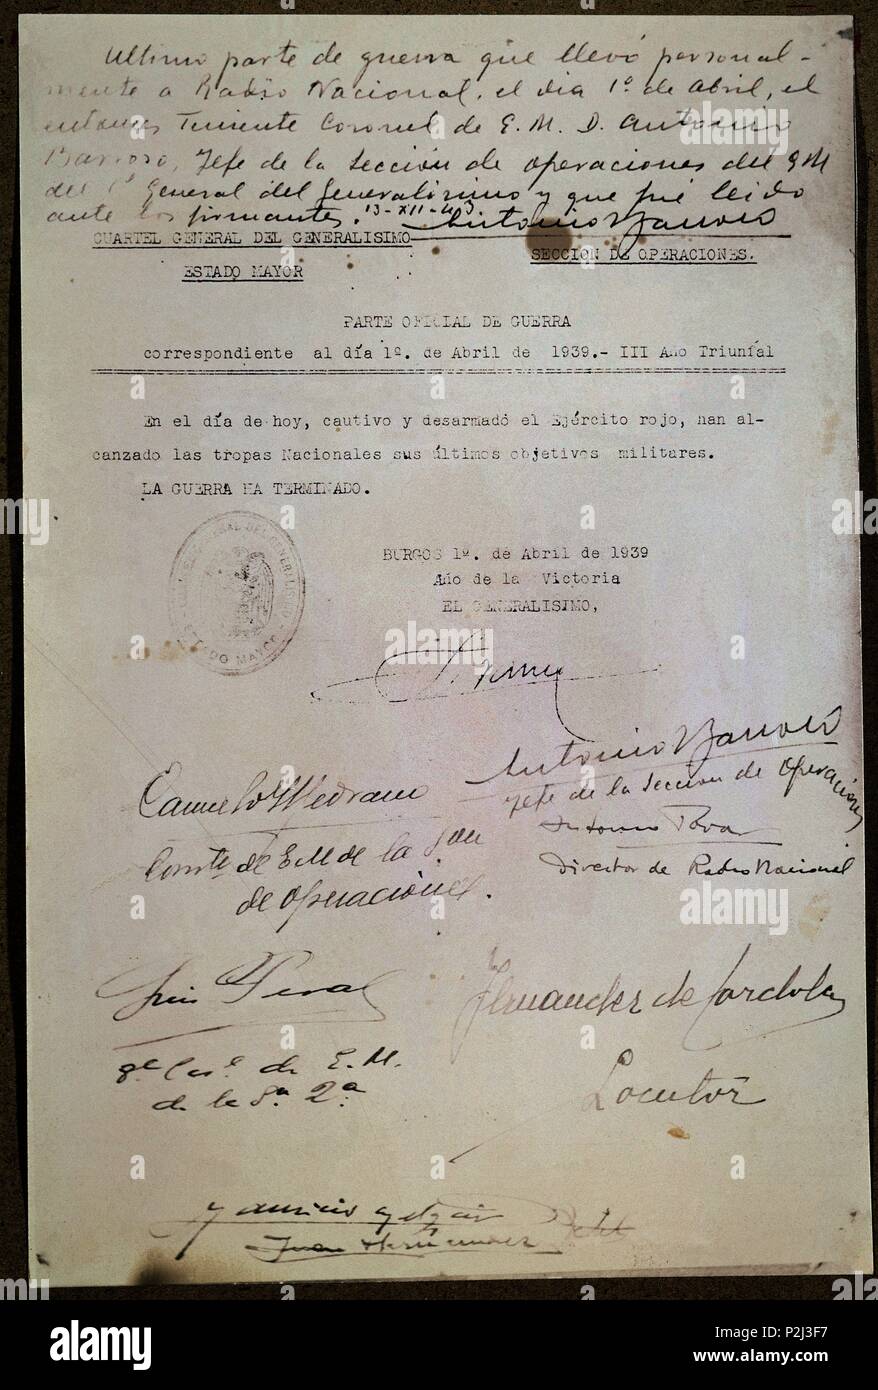 Ultimo parte de guerra que llevó personal-
mente a Radio Nacional, el dia 1º de Abril, el
entonces Teniente Coronel de E. M. D. Antonio
Barroso, Jefe de la Sección de operaciones del
del General del Generalísimo y que fué leido
ante los firmantes. 13-XII-43. Antonio Barroso
CUARTEL GENERAL DEL GENERALISIMO
SECCION DE OPERACIONES.
ESTADO MAYOR
PARTE OFICIAL DE GUERRA
correspondiente al día 1º. de Abril de 1939.- III Año Triunfal
En el día de hoy, cautivo y desarmado el Ejército rojo, han al-
canzado las tropas Nacionales sus últimos objetivos militares.
LA GUERRA HA TERMINADO.
BURGOS 1º. de Abril de 1939
Año de la Victoria
EL GENERALISIMO,
ESTADO MAYOR
Antonio Barroso
Jefe de la Sección de Operaciones
Carmelo Medrano
Comte de E M de la
de Operaciones.
Antonio Tovar
Director de Radio Nacional
Luis
de E. M.
de la 2ª
Fernandez de Cordoba
Locutor
Juan Hernandez
alamy
alamy
Image ID: P2J3F7
www.alamy.com